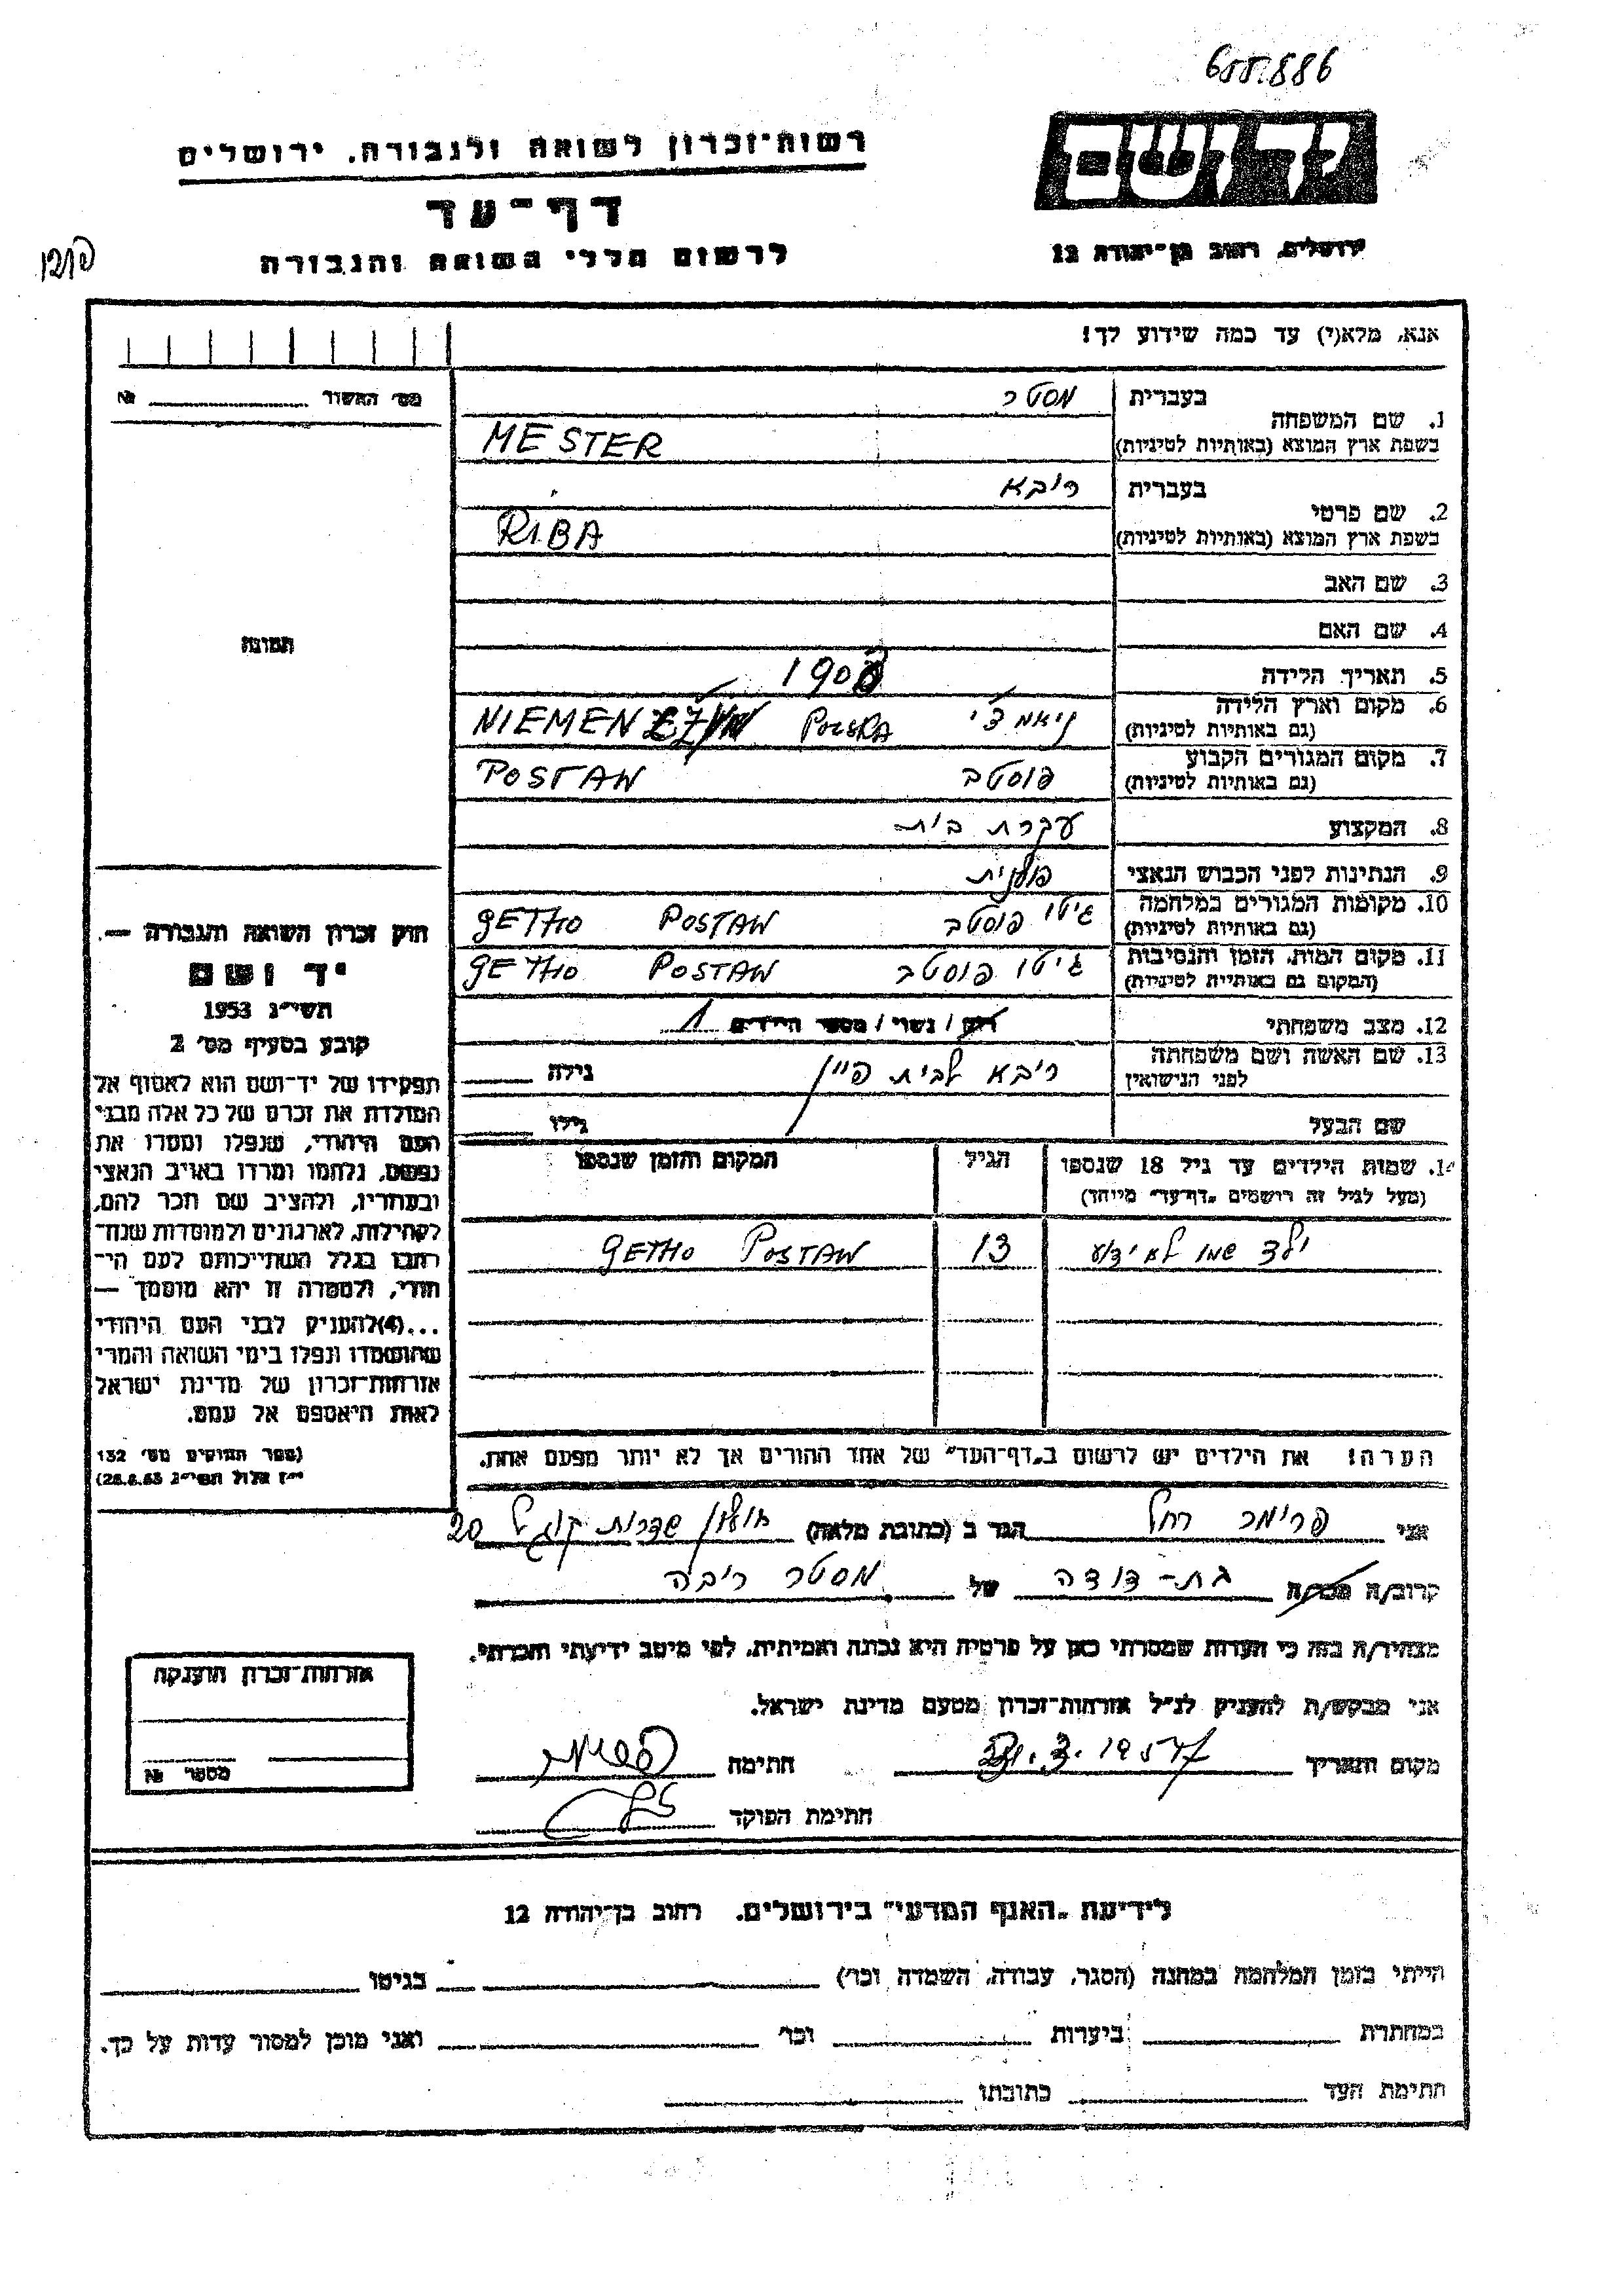 655.886
יד ושם
ירושלים, רחוב בן־יהודה 12
רשות־זכרון לשואה ולגבורה, ירושלים
דף־עד
לרשום חללי השואה והגבורה
אנא, מלא(י) עד כמה שידוע לך!
מס׳ האשור № 
1. שם המשפחה
בעברית מסטר
בשפת ארץ המוצא (באותיות לטיניות) MESTER
2. שם פרטי
בעברית ריבא
בשפת ארץ המוצא (באותיות לטיניות) RIBA
3. שם האב
4. שם האם
תמונה
5. תאריך הלידה 190
6. מקום וארץ הלידה
(גם באותיות לטיניות) POLSKA
7. מקום המגורים הקבוע פוסטב POSTAW
(גם באותיות לטיניות)
8. המקצוע עקרת בית
9. הנתינות לפני הכבוש הנאצי פולנית
10. מקומות המגורים במלחמה גיטו פוסטב GETHO POSTAW
(גם באותיות לטיניות)
11. מקום המות, הזמן והנסיבות גיטו פוסטב GETHO POSTAW
(המקום גם באותיות לטיניות)
12. מצב משפחתי רווק / נשוי / מספר הילדים 1
13. שם האשה ושם משפחתה ריבא לבית פיין גילה
לפני הנישואין
שם הבעל גילו
14. שמות הילדים עד גיל 18 שנספו הגיל המקום והזמן שנספו
(מעל לגיל זה רושמים „דף־עד” מיוחד)
ילד שמו לא ידוע 13 GETHO POSTAW
הערה! את הילדים יש לרשום ב„דף־העד” של אחד ההורים אך לא יותר מפעם אחת.
חוק זכרון השואה והגבורה —
יד ושם
תשי״ג 1953
קובע בסעיף מס׳ 2
תפקידו של יד־ושם הוא לאסוף אל
המולדת את זכרם של כל אלה מבני
העם היהודי, שנפלו ומסרו את
נפשם, נלחמו ומרדו באויב הנאצי
ובעוזריו, ולהציב שם וזכר להם,
לקהילות, לארגונים ולמוסדות שנח־
רבו בגלל השתייכותם לעם הי־
הודי, ולמטרה זו יהא מוסמך —
...(4)להעניק לבני העם היהודי
שהושמדו ונפלו בימי השואה והמרי
אזרחות־זכרון של מדינת ישראל
לאות היאספם אל עמם.
(ספר החוקים מס׳ 132
י״ז אלול תשי״ג 28.8.53)
אני פרימר רחל הגר ב (כתובת מלאה) חולון שדרות קוגל 20
קרוב/ה מכר/ה בת-דודה של מסטר ריבה
מצהיר/ה בזה כי העדות שמסרתי כאן על פרטיה היא נכונה ואמיתית, לפי מיטב ידיעתי והכרתי.
אני מבקש/ת להעניק לנ״ל אזרחות־זכרון מטעם מדינת ישראל.
מקום ותאריך 1957 חתימה
חתימת הפוקד
אזרחות־זכרון הוענקה
מספר №
לידיעת „האגף המדעי” בירושלים, רחוב בן־יהודה 12
הייתי בזמן המלחמה במחנה (הסגר, עבודה, השמדה וכו׳) בגיטו
במחתרת ביערות וכו׳ ואני מוכן למסור עדות על כך.
חתימת העד כתובתו